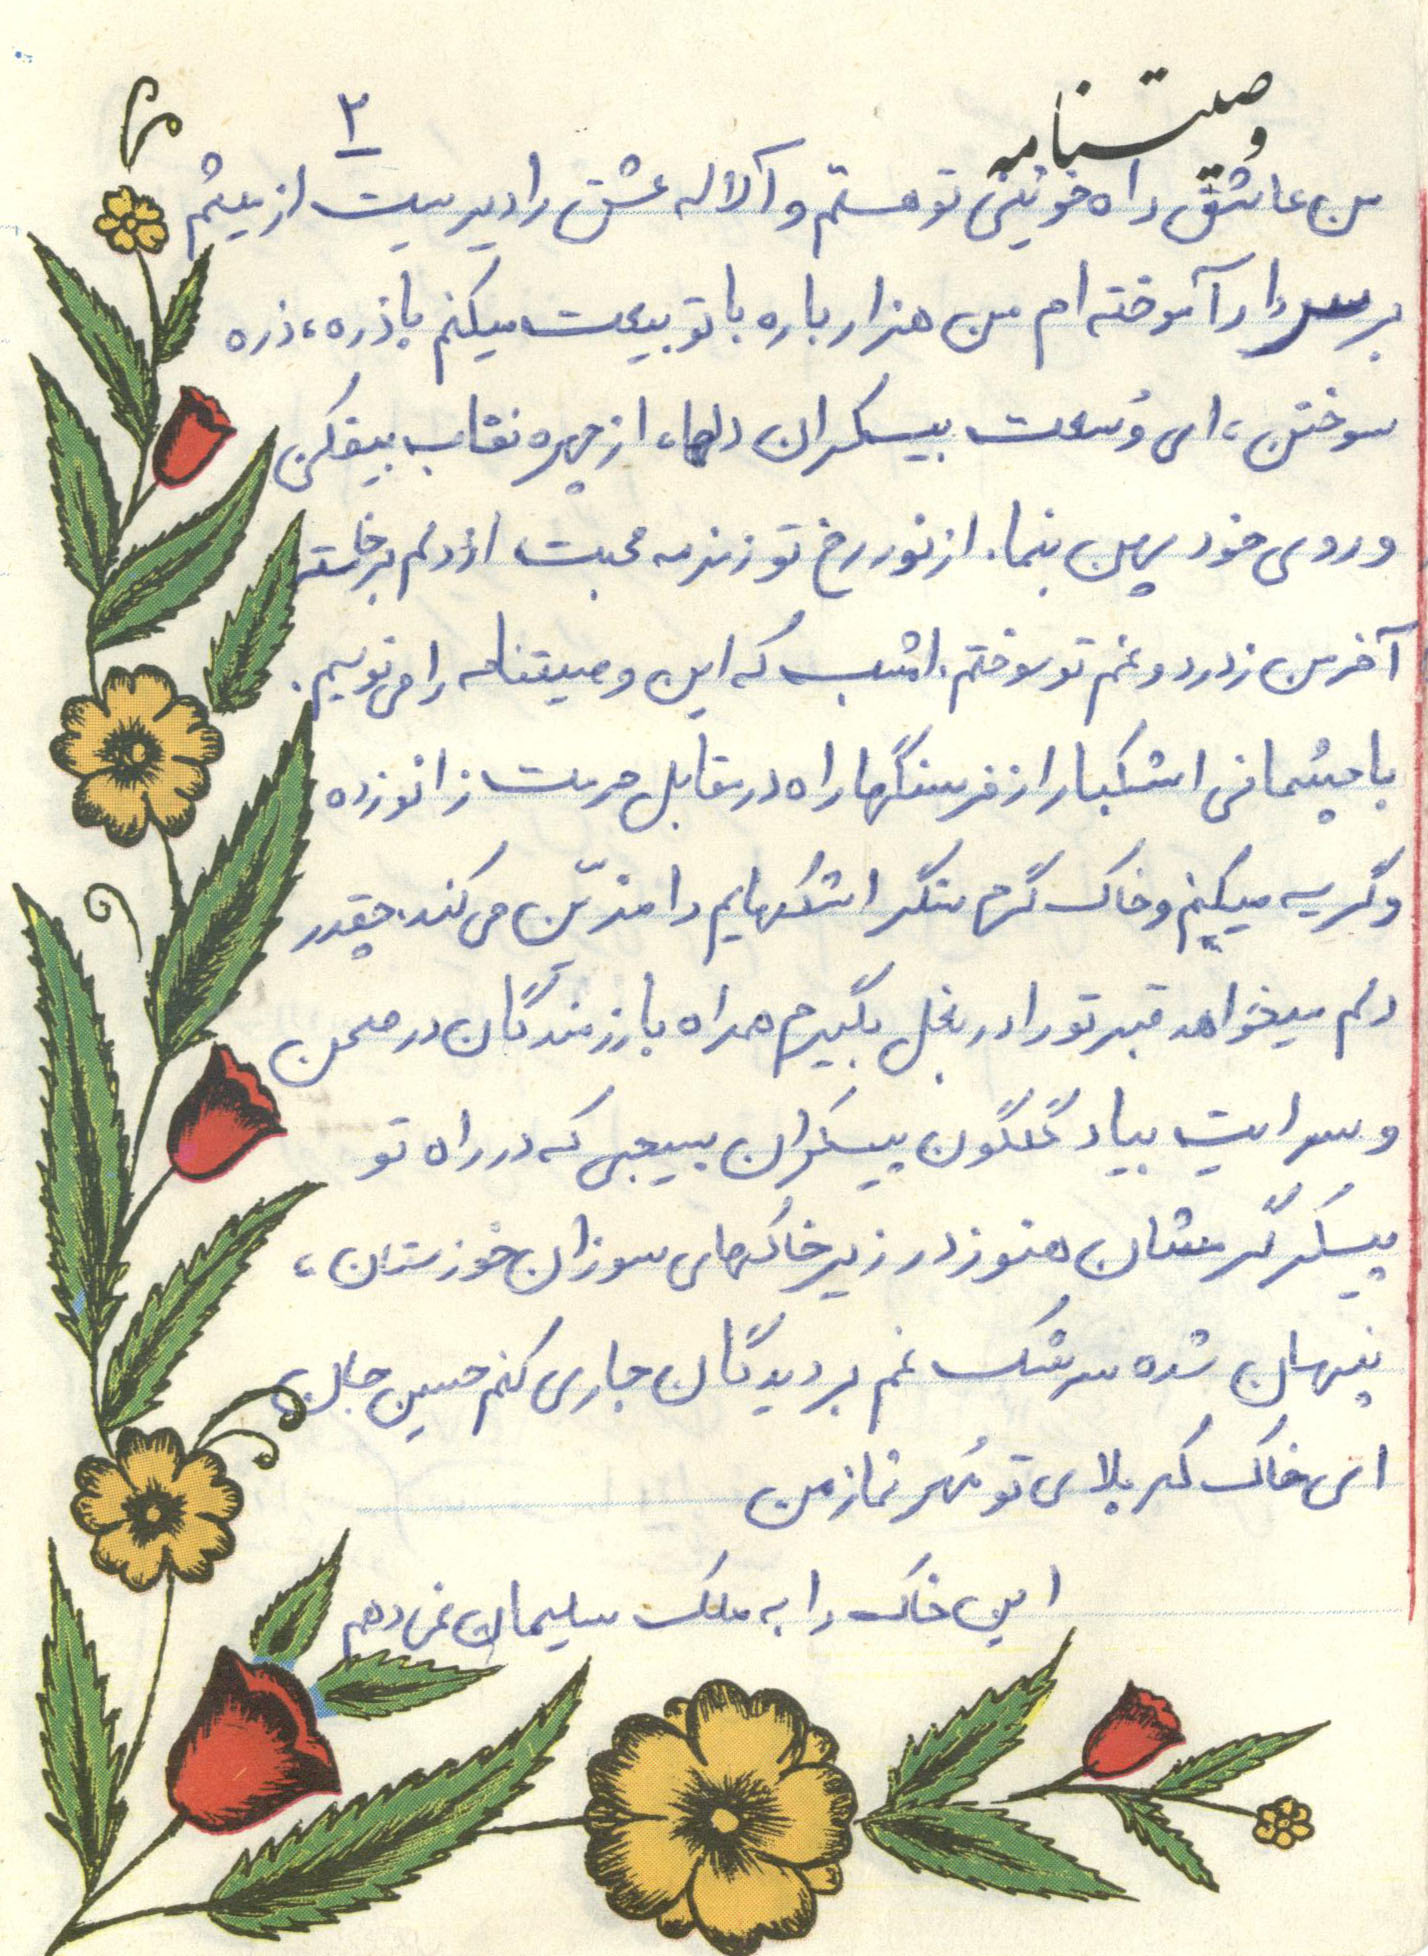 وصیتنامه
۲
من عاشق راه خونین تو هستم و آلاله عشق را دیریست از میثم
بر سر دار آموخته ام من هزار باره با تو بیعت میکنم با ذره، ذره
سوختن، ای وُسعت بیکران دلها، از چهره نقاب بیفکن
و روی خود بمن بنما. از نور رخ تو زمزمه محبت از دلم برخاسته
آخر من ز درد و غم تو سوختم. امشب که این وصیتنامه را می نویسم.
با چشمانی اشکبار از فرسنگها راه در مقابل حرمت زانو زده
و گریه میکنم و خاک گرم سنگر اشکهایم را مزیّن می کند. چقدر
دلم میخواهد قبر تو را در بغل بگیرم همراه با رزمندگان در صحن
و سرایت بیاد گلگون پیکران بسیجی که در راه تو
پیکر گرمشان هنوز در زیر خاکهای سوزان خوزستان،
پنهان شده سرشک غم بر دیدگان جاری کنم حسین جان
ای خاک کربلای تو مُهر نماز من
این خاک را به ملک سلیمان نمی دهم